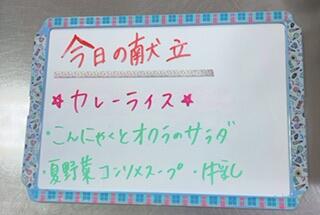 今日の献立
☆カレーライス☆
・こんにゃくとオクラのサラダ
・夏野菜コンソメスープ ・牛乳